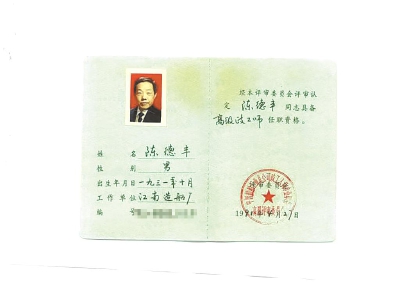 姓 名 陈德丰
性 别 男
出生年月日 一九三一年十月
工作单位 江南造船厂
编 号
经本评审委员会评审认
定 陈德丰 同志具备
高级政工师 任职资格。
评审委员会
月27日